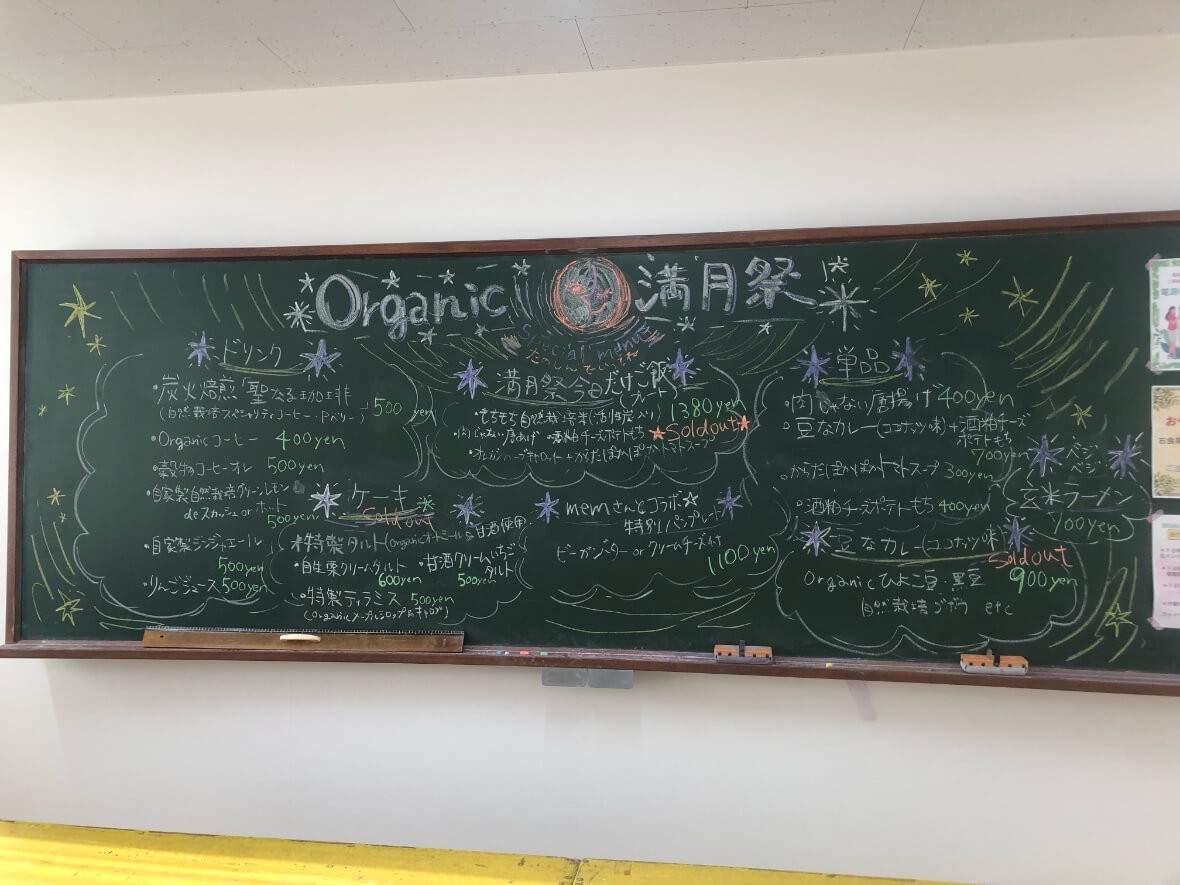 Organic 満月祭
Special menu
ドリンク
・炭火焙煎「聖なる珈琲
(自然栽培スペシャリティコーヒー・ 500yen
・Organicコーヒー 400yen
・穀物コーヒーオレ 500yen
・自家製自然栽培グリーンレモン
deスカッシュorホット
500yen
・自家製ジンジャエール
500yen
・りんごジュース 500yen
ケーキ
Sold out
特製タルト(Organicオートミール&甘酒使用
・自生栗クリームタルト
600yen
・甘酒クリームいちご
タルト
500yen
特製ティラミス 500yen
(Organicメープルシロップ&キャロブ)
満月祭今日だけご飯
(プレート)
・もちもち自然栽培米 1380yen
・肉じゃない唐あげ ・酒粕チーズポテトもち ★Soldout★
・オレンジハーブキャロット ・からだぽかぽかトマトスープ
memさんとコラボ☆
特別パンプレート
ビーガンバターorクリームチーズ付
1100yen
単品
・肉じゃない唐揚げ 400yen
・豆なカレー(ココナッツ味)+酒粕チーズ
ポテトもち
700yen
・からだぽかぽかトマトスープ 300yen
・酒粕チーズポテトもち 400yen
ベジ・
ベジ・
玄米ラーメン
700yen
豆なカレー(ココナッツ味
Soldout
Organicひよこ豆・黒豆 900yen
自然栽培ゴボウ etc